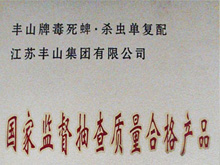 丰山牌毒死蜱·杀虫单复配
江苏丰山集团有限公司
国家监督抽查质量合格产品